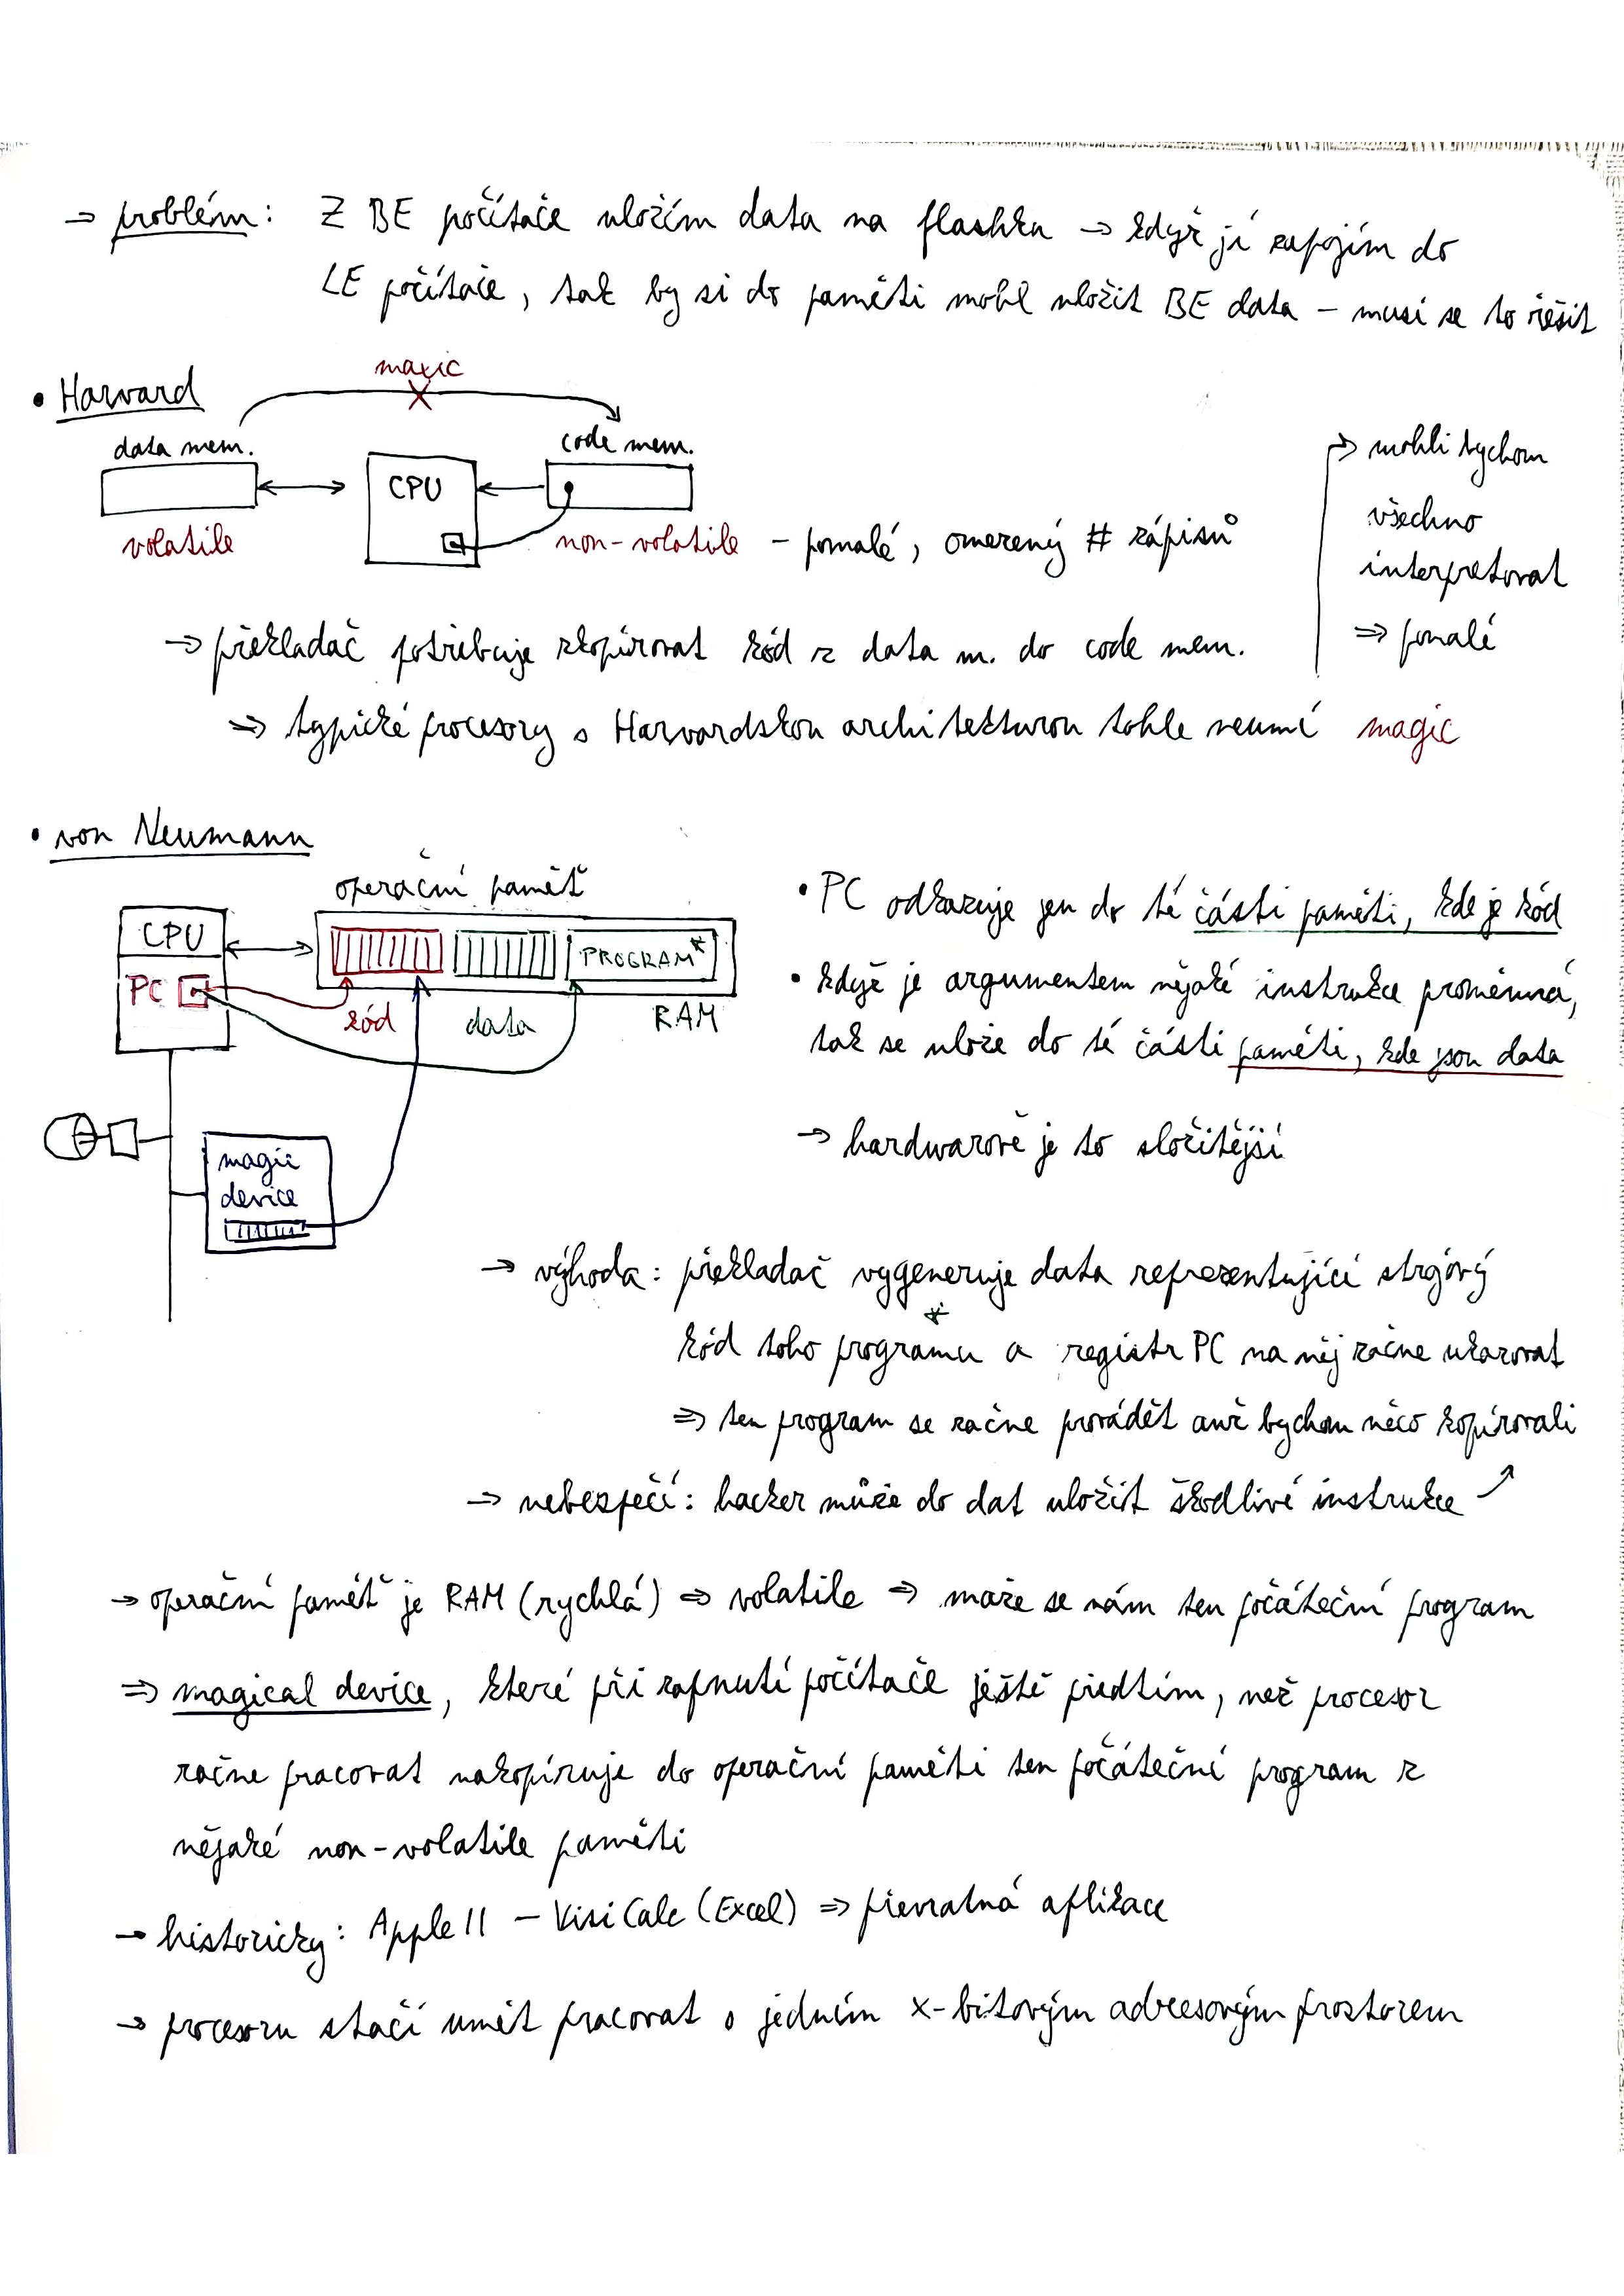 → problém: Z BE počítače uložím data na flashku → když jí zapojím do
LE počítače, tak by si do paměti mohl uložit BE data – musí se to řešit
• Harvard
magic
data mem.
CPU
code mem.
volatile
non-volatile – pomalé, omezený # zápisů
→ mohli bychom
všechno
interpretovat
⇒ pomalé
→ překladač potřebuje zkopírovat kód z data m. do code mem.
⇒ typické procesory s Harvardskou architekturou tohle neumí magic
• von Neumann
operační paměť
CPU
PROGRAM*
PC
kód
data
RAM
magic
device
• PC odkazuje jen do té části paměti, kde je kód
• když je argumentem nějaké instrukce proměnná,
tak se uloží do té části paměti, kde jsou data
→ hardwarově je to složitější
→ výhoda: překladač vygeneruje data reprezentující strojový
kód toho programu* a registr PC na něj začne ukazovat
⇒ ten program se začne provádět aniž bychom něco kopírovali
→ nebezpečí: hacker může do dat uložit škodlivé instrukce
→ operační paměť je RAM (rychlá) ⇒ volatile ⇒ maže se nám ten počáteční program
⇒ magical device, které při zapnutí počítače ještě předtím, než procesor
začne pracovat nakopíruje do operační paměti ten počáteční program z
nějaké non-volatile paměti
→ historicky: Apple II – VisiCalc (Excel) ⇒ převratná aplikace
→ procesoru stačí umět pracovat s jedním x-bitovým adresovým prostorem